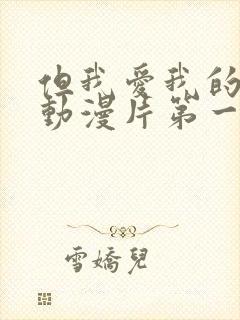 但我愛我的
動漫片第一
雪嬌兒